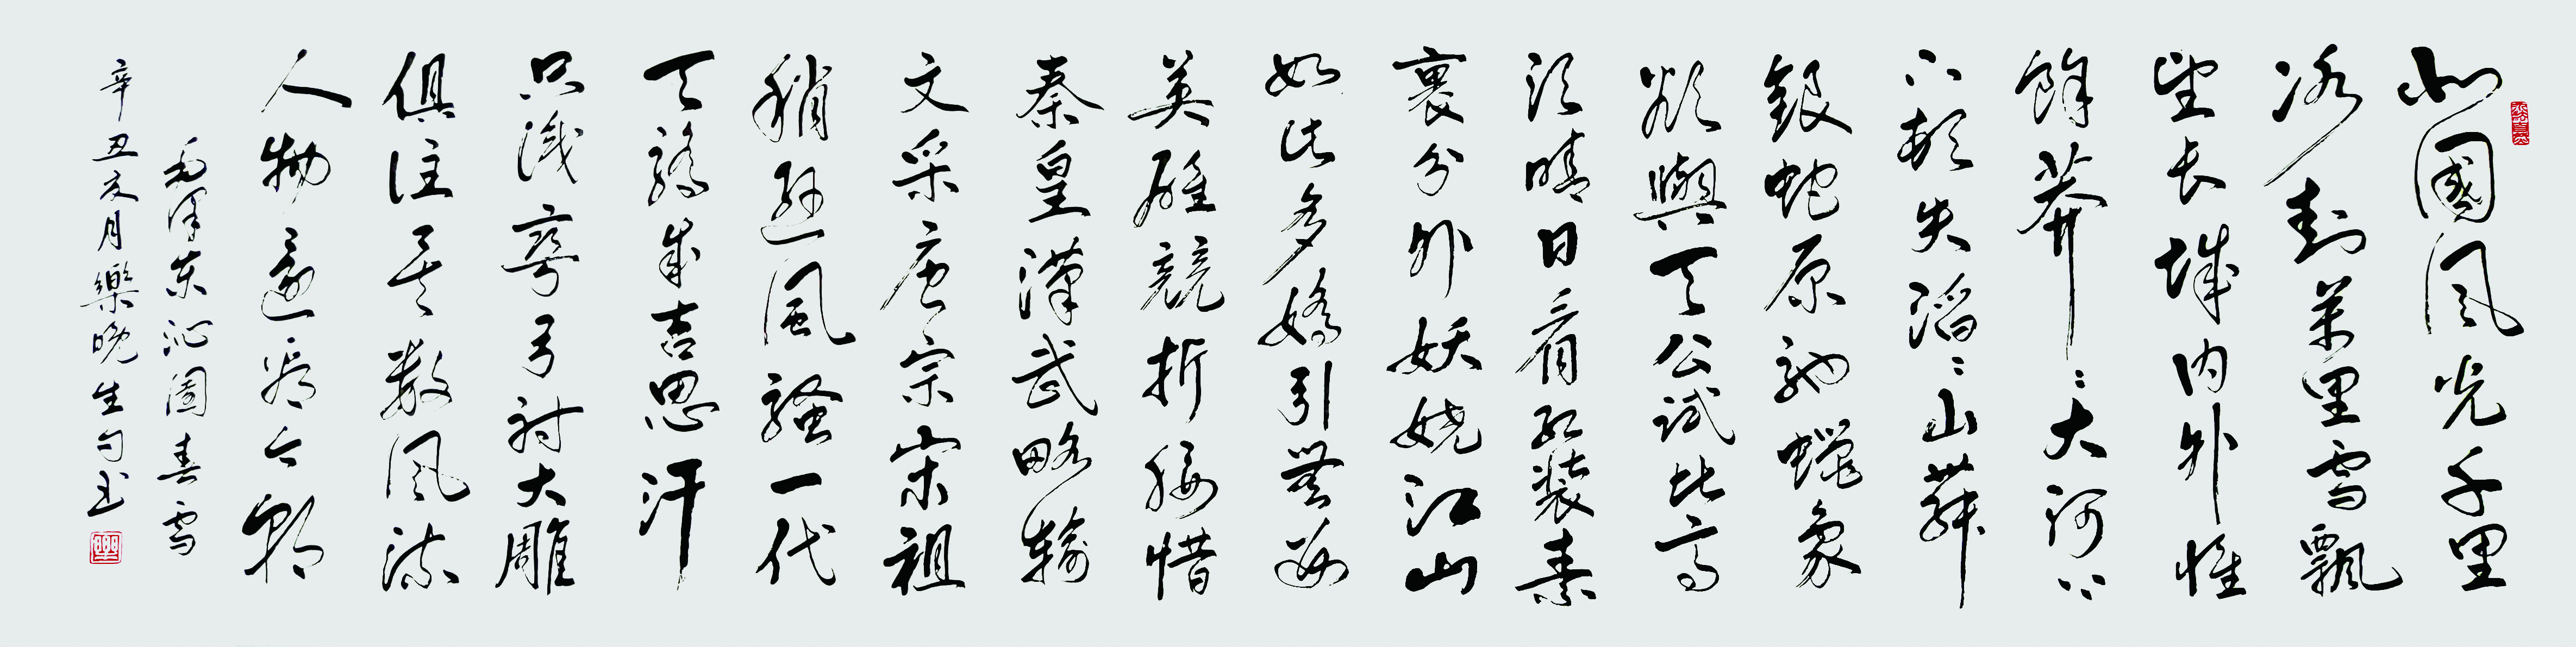 北國風光千里
冰封萬里雪飄
望长城内外惟
餘莽〻大河上
下頓失滔〻山舞
銀蛇原馳蠟象
欲與天公試比高
须晴日看红装素
裹分外妖娆江山
如此多嬌引無数
英雄競折腰惜
秦皇漢武略輸
文采唐宗宋祖
稍遜風騷一代
天驕成吉思汗
只識彎弓射大雕
俱往矣数風流
人物還看今朝
毛泽东沁園春雪
辛丑六月樂晚生书